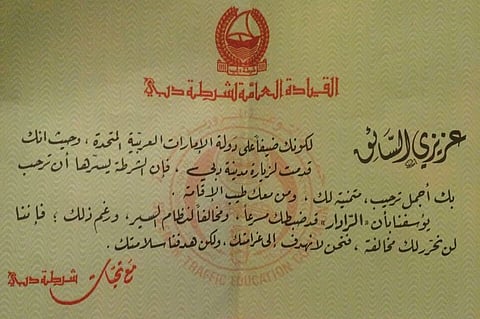 القيادة العامة لشرطة دبي
عزيزي السائق
لكونك ضيفاً على دولة الإمارات العربية المتحدة، وحيث انك
قدمت لزيارة مدينة دبي، فإن لشرطة يسرها أن ترحب
بك أجمل ترحيب، متمنية لك، ومن معك طيب الاقامة.
يؤسفنا بأن "الرادار" قد ضبطك مسرعاً، ومخالفاً لنظام السير، ورغم ذلك؛ فإننا
لن نحرر لك مخالفة، فنحن لا نهدف إلى غرامتك، ولكن هدفنا سلامتك.
مع تحيات شرطة دبي
TRAFFIC EDUCATION